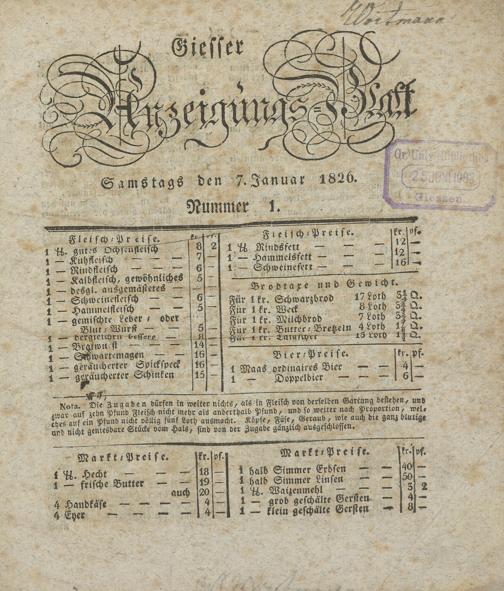 Wortmann
Giesser
Anzeigungs-Blatt
Samstags den 7. Januar 1826.
Nummer 1.
Giessen
Fleisch-Preise. kr. pf.
1 ℔. gutes Ochsenfleisch 8 2
1 — Kuhfleisch 7 —
1 — Rindfleisch — 6 —
1 — Kalbfleisch, gewöhnliches 5 —
1 — desgl. ausgemästetes
1 — Schweinefleisch — 6 —
1 — Hammelfleisch — 5 —
1 — gemischte Leber- oder
Blut-Wurst — 5 —
— dergleichen bessere — 8 —
1 — Bratwurst — 14 —
1 — Schwartemagen — 16 —
1 — geräucherter Spickspeck 16 —
1 — geräucherter Schinken 15 —
Fleisch-Preise. kr. pf.
1 ℔. Rindsfett — — 12 —
1 — Hammelsfett — — 12 —
1 — Schweinefett — — 16 —
Brodtaxe und Gewicht.
Für 1 kr. Schwarzbrod 17 Loth
Für 1 kr. Weck 8 Loth
Für 1 kr. Milchbrod 7 Loth
Für 1 kr. Butter-Bretzeln 4 Loth
Für 1 kr. 15 Loth
Bier-Preise. kr. pf.
1 Maas ordinaires Bier — 4 —
1 — Doppelbier — 6 —
Nota. Die Zugaben dürfen in weiter nichts, als in Fleisch von derselben Gattung bestehen, und
zwar auf zehn Pfund Fleisch nicht mehr als anderthalb Pfund, und so weiter nach Proportion, wel-
ches auf ein Pfund nicht völlig fünf Loth ausmacht. Köpfe, Füße, Geraub, wie auch die ganz blutige
und nicht geniesbare Stücke vom Hals, sind von der Zugabe gänzlich ausgeschlossen.
Markt-Preise. kr. pf.
1 ℔. Hecht — — 18 —
1 — frische Butter — — 19 —
auch 20 —
4 Handkäse — — — 4 —
4 Eyer — — — — 4 —
Markt-Preise. kr. pf.
1 halb Simmer Erbsen — 40 —
1 halb Simmer Linsen — 50 —
1 ℔. Waizenmehl — — 3 2
1 — grob geschälte Gersten — 4 —
1 — klein geschälte Gersten — 8 —